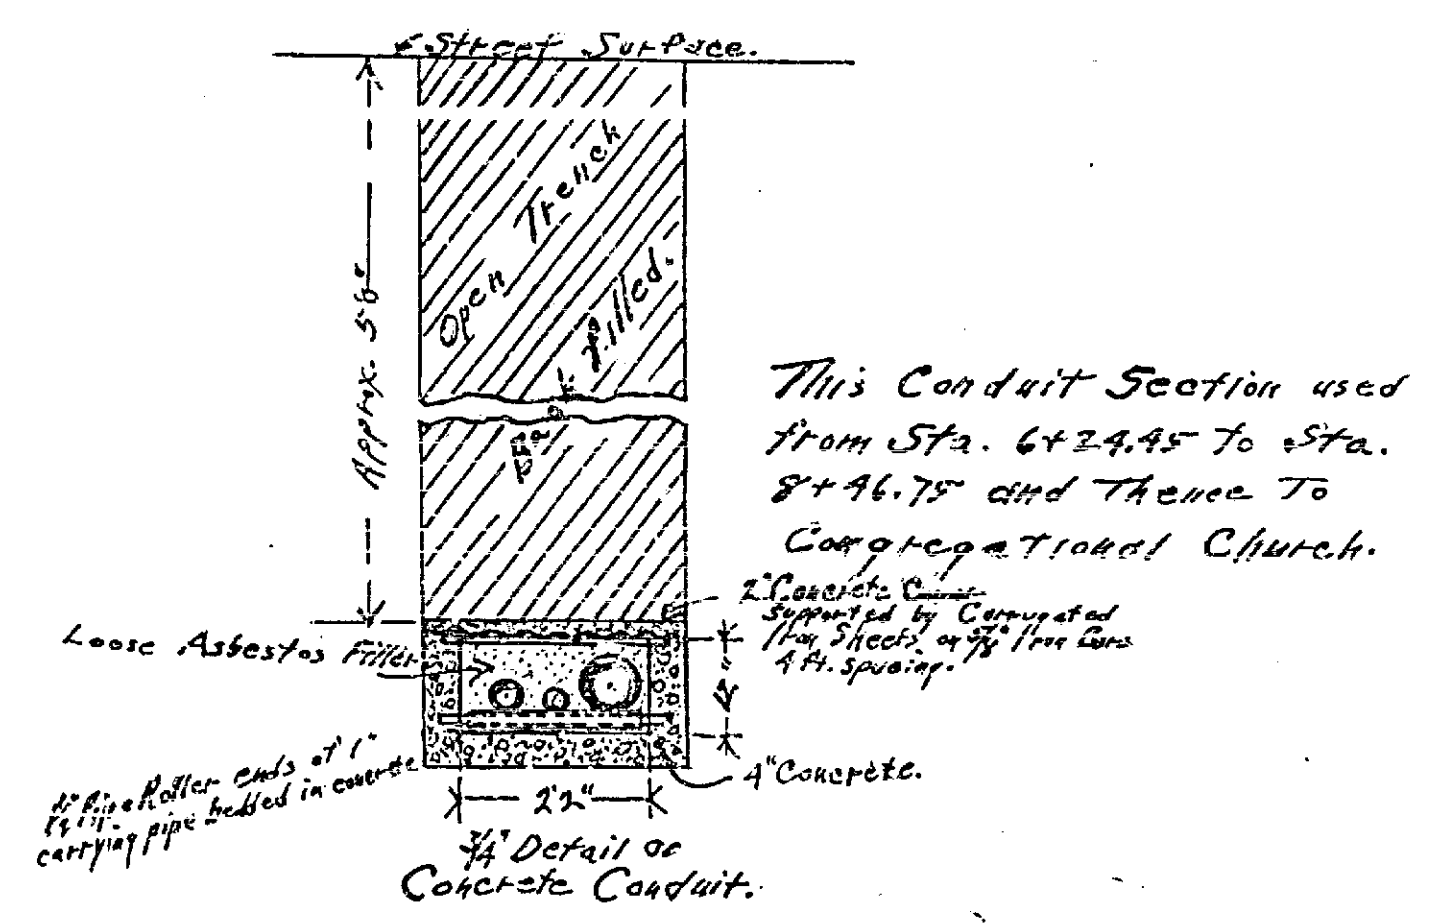 Street Surface.
Open Trench
Earth Filled.
Approx. 5'6"
This Conduit Section used
from Sta. 6+24.45 To Sta.
8+46.75 and Thence To
Congregational Church.
2" Concrete Cover
supported by Corrugated
Iron Sheets on Iron Bars
4 ft. spacing.
Loose Asbestos Filler
12"
4" Concrete.
Pipe Roller ends of 1"
carrying pipe bedded in concrete
2'2"
3/4" Detail of
Concrete Conduit.